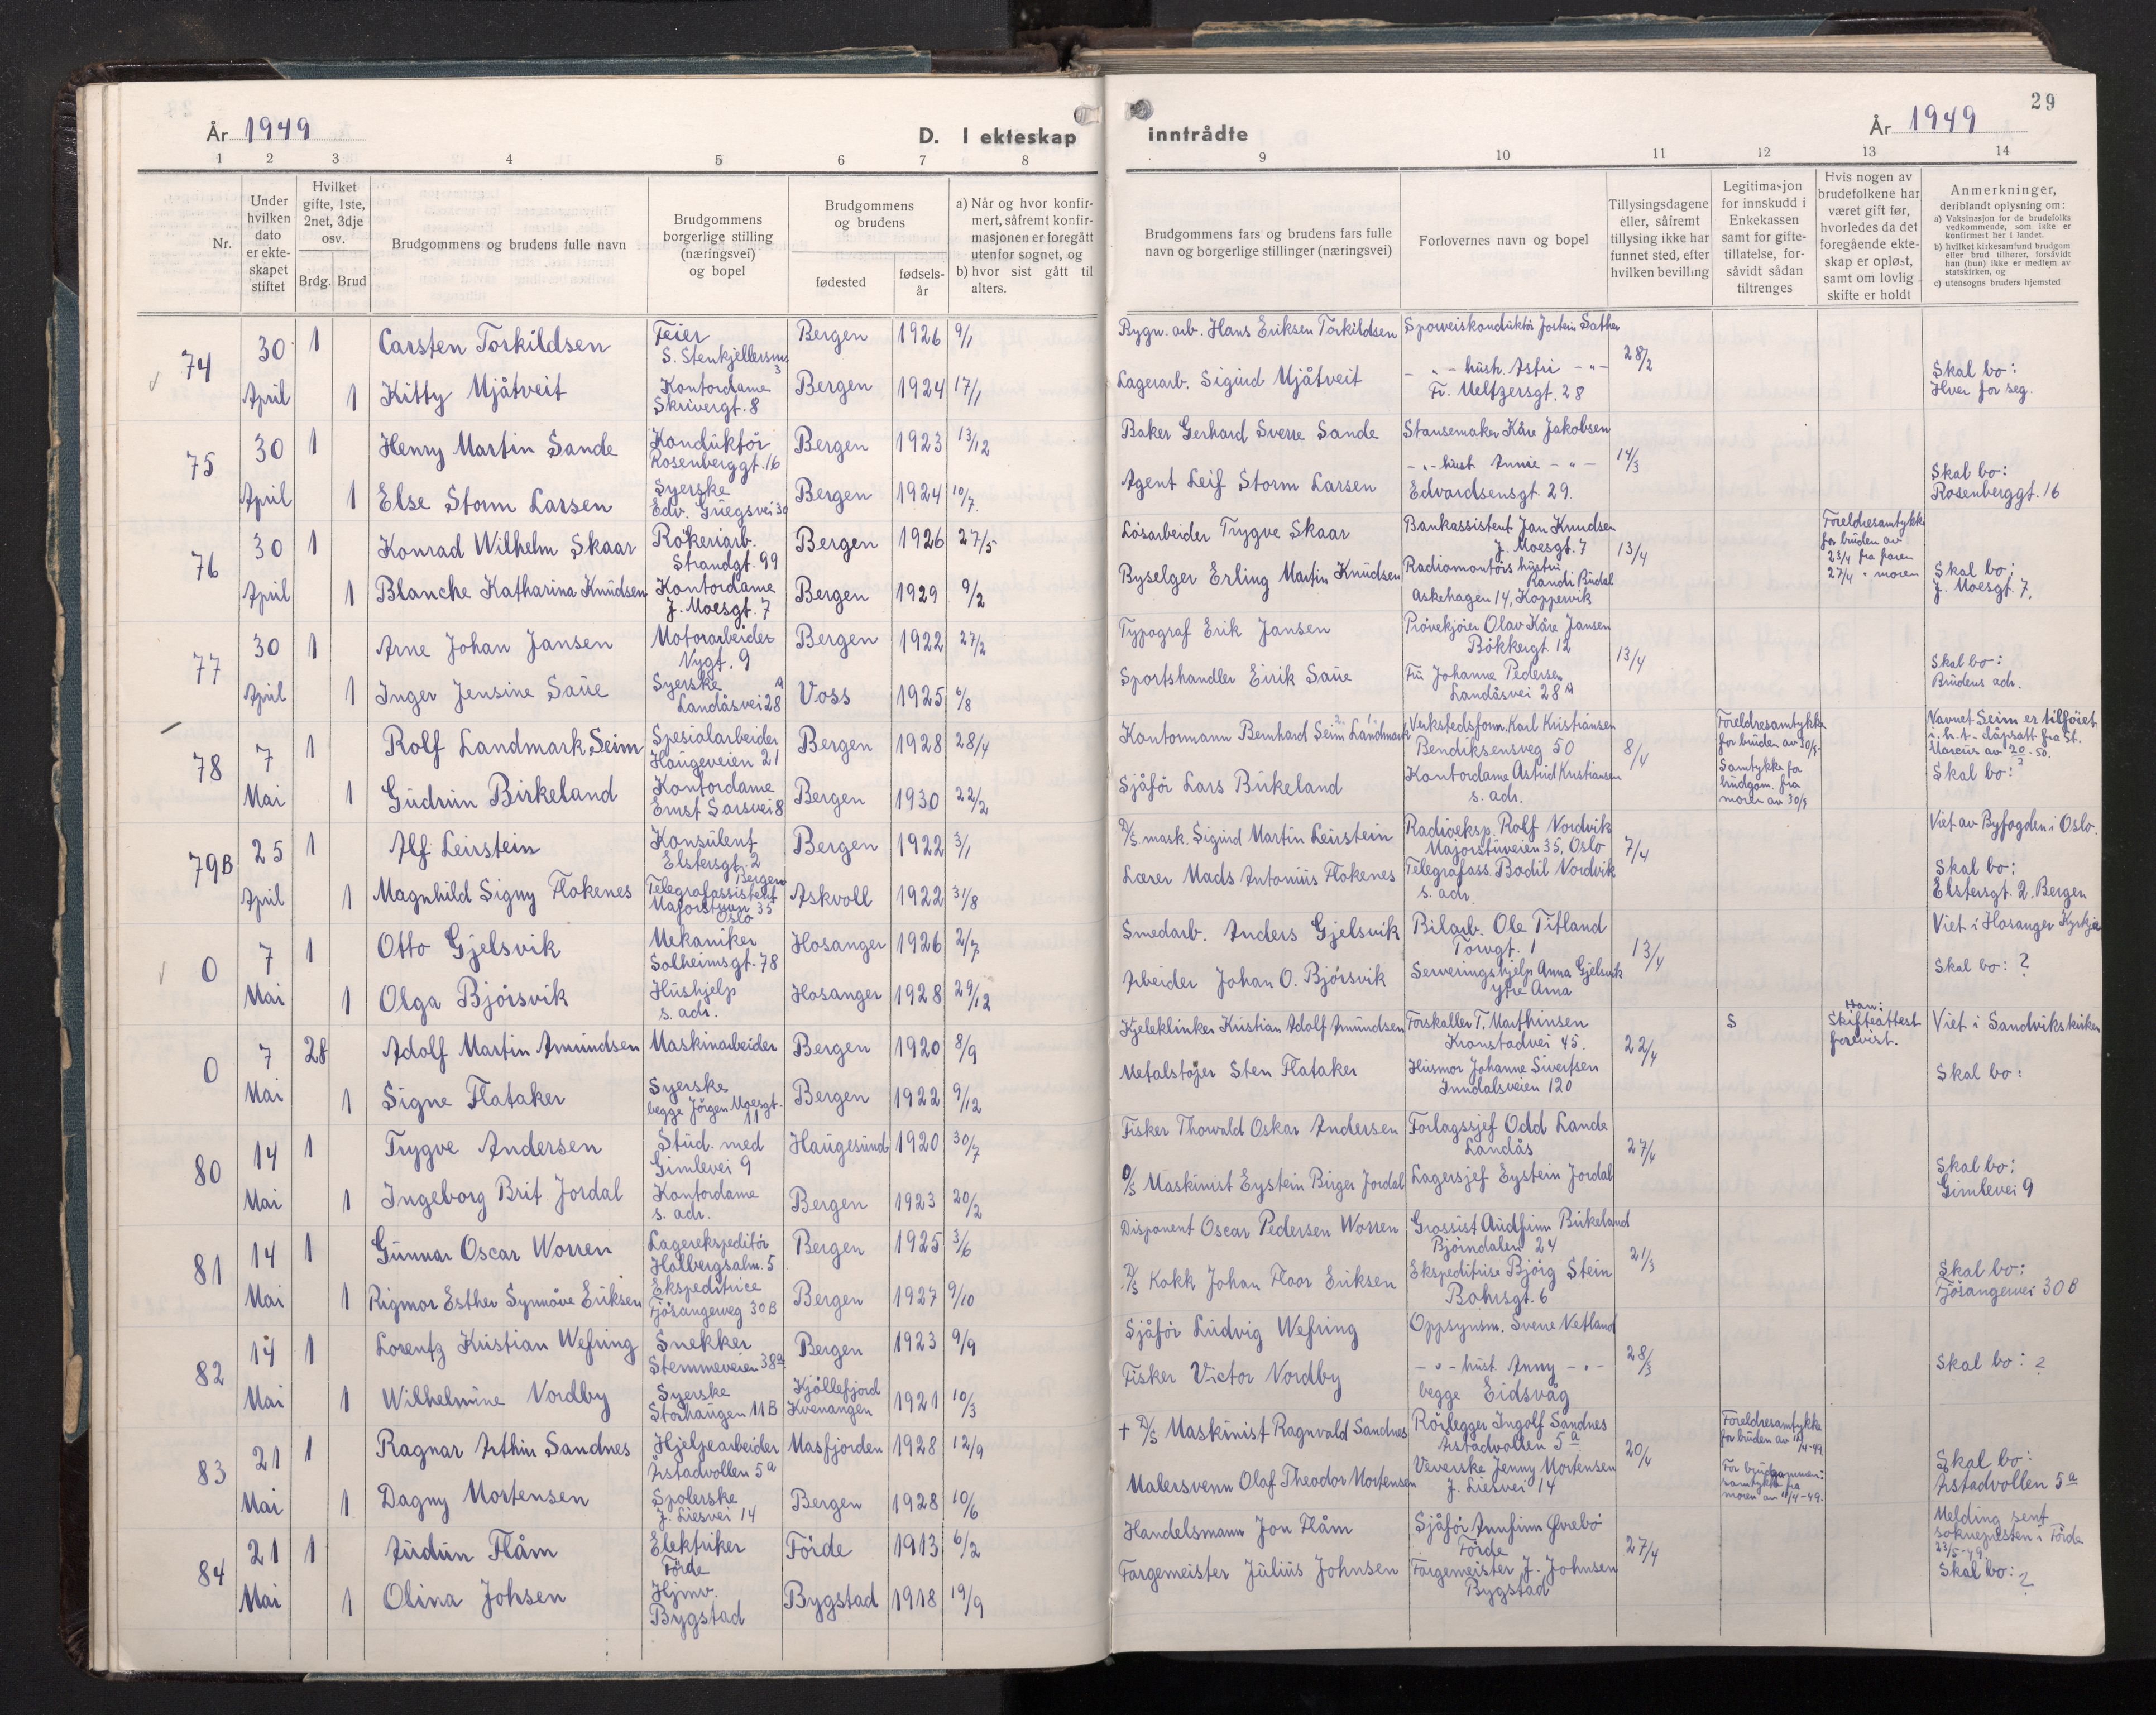 År 1949
D. I ekteskap
1 2 3 4 5 6 7 8
Nr.
Under hvilken dato er ekteskapet stiftet
Hvilket gifte, 1ste, 2net, 3dje osv.
Brdg. Brud
Brudgommens og brudens fulle navn
Brudgommens borgerlige stilling (næringsvei) og bopel
Brudgommens og brudens
fødested
fødselsår
a) Når og hvor konfirmert, såfremt konfirmasjonen er foregått utenfor sognet, og
b) hvor sist gått til alters.
74 30 1 Carsten Torkildsen Feier Bergen 1926 9/1
S. Stenkjellersm. 3
April 1 Kitty Mjåtveit Kontordame Bergen 1924 17/1
Skrivergt. 8
75 30 1 Henry Martin Sande Konduktör Bergen 1923 13/12
Rosenberggt. 16
April 1 Else Storm Larsen Syerske Bergen 1924 10/7
Edv. Griegsvei 30
76 30 1 Konrad Wilhelm Skaar Rökeriarb. Bergen 1926 27/5
Strandgt. 99
April 1 Blanche Katharina Knudsen Kontordame Bergen 1929 9/2
J. Moesgt. 7
77 30 1 Arne Johan Jansen Motorarbeider Bergen 1922 27/2
Nygt. 9
April 1 Inger Jensine Saue Syerske Voss 1925 6/8
Landåsvei 28 A
78 7 1 Rolf Landmark Seim Spesialarbeider Bergen 1928 28/4
Haugeveien 21
Mai 1 Gudrun Birkeland Kontordame Bergen 1930 22/2
Ernst Sarsvei 8
79B 25 1 Alf Leirstein Konsulent Bergen 1922 3/1
Elstersgt. 2
Bergen
April 1 Magnhild Signy Flokenes Telegrafassistent Askvoll 1922 31/8
Majorstuvn 35
Oslo
0 7 1 Otto Gjelsvik Mekaniker Hosanger 1926 2/7
Solheimsgt. 78
Mai 1 Olga Bjørsvik Hushjelp Hosanger 1928 29/12
s. adr.
0 7 28 Adolf Martin Amundsen Maskinarbeider Bergen 1920 8/9
Mai 1 Signe Flataker Syerske Bergen 1922 9/12
begge Jörgen Moesgt. 11
80 14 1 Trygve Andersen Stud. med Haugesund 1920 30/7
Gimlevei 9
Mai 1 Ingeborg Brit Jordal Kontordame Bergen 1923 20/2
s. adr.
81 14 1 Gunnar Oscar Worren Lagerekspeditör Bergen 1925 3/6
Holbergsalm. 5
Mai 1 Rigmor Esther Synnöve Eriksen Ekspeditrice Bergen 1927 9/10
Fjösangerveg 30 B
82 14 1 Lorentz Kristian Wefring Snekker Bergen 1923 9/9
Stemmeveien 38a
Mai 1 Wilhelmine Nordby Syerske Kjöllefjord 1921 10/3
Storhaugen 11 B Kvenangen
83 21 1 Ragnar Arthur Sandnes Hjelpearbeider Masfjorden 1928 12/9
Årstadvollen 5a
Mai 1 Dagny Mortensen Spolerske Bergen 1928 10/6
J. Liesvei 14
84 21 1 Audun Flåm Elektriker Förde 1913 6/2
Förde
Mai 1 Olina Johsen Hjmv. Bygstad 1918 19/9
Bygstad
29
inntrådte
År 1949
9 10 11 12 13 14
Brudgommens fars og brudens fars fulle navn og borgerlige stillinger (næringsvei)
Forlovernes navn og bopel
Tillysingsdagene eller, såfremt tillysing ikke har funnet sted, efter hvilken bevilling
Legitimasjon for innskudd i Enkekassen samt for giftetillatelse, forsåvidt sådan tiltrenges
Hvis nogen av brudefolkene har været gift før, hvorledes da det foregående ekteskap er opløst, samt om lovlig skifte er holdt
Anmerkninger, deriblandt oplysning om:
a) Vaksinasjon for de brudefolks vedkommende, som ikke er konfirmert her i landet.
b) hvilket kirkesamfund brudgom eller brud tilhører, forsåvidt han (hun) ikke er medlem av statskirken, og
c) utensogns bruders hjemsted
Bygn. arb. Hans Eriksen Torkildsen Sporveiskonduktör Jostein Sather
28/2
Lagerarb. Sigurd Mjåtveit - " - hust. Astri - " - Skal bo:
Fr. Meltzersgt. 28 Hver for seg.
Baker Gerhard Sverre Sande Stansemaker Kåre Jakobsen
14/3
Agent Leif Storm Larsen - " - hust. Annie - " - Skal bo:
Edvardsensgt. 29. Rosenberggt. 16
Lösarbeider Trygve Skaar Bankassistent Jan Knudsen Foreldresamtykke
J. Moesgt. 7 13/4 for bruden av
23/4 fra faren
27/4 " moren
Byselger Erling Martin Knudsen Radiomontörs hustru Skal bo:
Randi Budal J. Moesgt. 7.
Askehagen 14, Koppervik
Typograf Erik Jansen Prövekjörer Olav Kåre Jansen
Bökkergt. 12 13/4
Sportshandler Eirik Saue Fru Johanne Pedersen Skal bo:
Landåsvei 28 A Brudens adr.
Kontormann Bernhard Seim Landmark Verkstedsform. Karl Kristiansen Foreldresamtykke Navnet Seim er tilföiet
Bendiksensveg 50 8/4 for bruden av 30/3. i.h.t. dåpsatt. fra St.
Marcus av 20/3-50.
Sjåför Lars Birkeland Kontordame Astrid Kristiansen Samtykke for Skal bo:
s. adr. brudgom. fra
moren av 30/3
D/S mask. Sigurd Martin Leirstein Radioeksp. Rolf Nordvik Viet av Byfogden i Oslo.
Majorstuveien 35, Oslo 7/4
Lærer Mads Antonius Flokenes Telegrafass. Bodil Nordvik Skal bo:
s. adr. Elstersgt. 2. Bergen
Smedarb. Anders Gjelsvik Bilarb. Ole Titland Viet i Hosanger Kyrkje
Torvgt. 1 13/4
Arbeider Johan O. Bjørsvik Serveringshjelp Anna Gjelsvik Skal bo: ?
Ytre Arna
Kjeleklinker Kristian Adolf Amundsen Forskaller T. Marthinsen S Han: Viet i Sandvikskirken
Kronstadvei 45. 22/4 Skifteattest
forevist.
Metalstöper Sten Flataker Husmor Johanne Sivertsen Skal bo:
Inndalsveien 120
Fisker Thorvald Oskar Andersen Forlagssjef Odd Lande
Landås 27/4
D/S Maskinist Eystein Birger Jordal Lagersjef Eystein Jordal Skal bo:
Gimlevei 9
Disponent Oscar Pedersen Worren Grossist Audfinn Birkeland
Björndalen 24 21/3
D/S Kokk Johan Floor Eriksen Ekspeditrise Bjørg Stein Skal bo:
Bohrsgt. 6 Fjösangervei 30 B
Sjåför Ludvig Wefring Oppsynsm. Sverre Netland
28/3
Fisker Victor Nordby - " - hust. Anny - " - Skal bo: ?
begge Eidsvåg
+ D/S Maskinist Ragnvald Sandnes Rörlegger Ingolf Sandnes Foreldresamtykke
Årstadvollen 5a 20/4 for bruden av 11/4-49
Malersvenn Olaf Theodor Mortensen Veverske Jenny Mortensen For brudgommen: Skal bo:
J. Liesvei 14 samtykke fra Årstadvollen 5a
moren av 11/4-49.
Handelsmann Jon Flåm Sjåför Annfinn Øvrebö Melding sent
Förde 27/4 soknepresten i Förde
23/5-49.
Fargemeister Julius Johnsen Fargemeister J. Johnsen Skal bo: ?
Bygstad